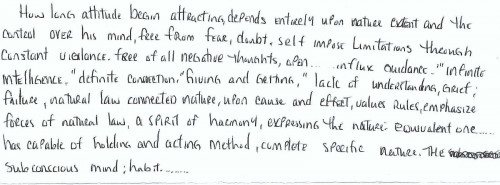 How long attitude begin attracting, depends entirely upon nature extent and the
control over his mind, free from fear, doubt, self impose Limitations through
Constant vigilance. free of all negative thoughts, open.... influx Guidance. "Infinite
Intelligence, "definite connection. "Giving and Getting," lack of understanding, Grief;
failure, natural law connected nature, upon cause and effect, values Rules, emphasize
forces of natural law, a spirit of harmony, expressing the nature: equivalent one......
has capable of holding and acting method, complete specific nature. The
Subconscious mind; habit........